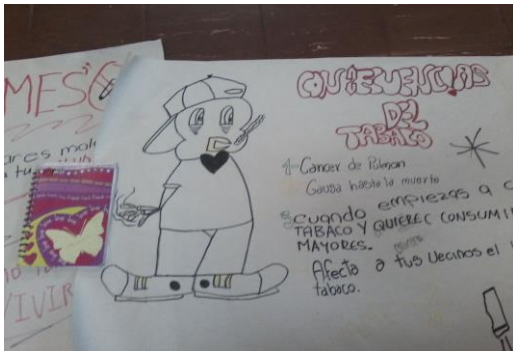 MES
ares
tu
VIVIR
CONSECUENCIAS
DEL
TABACO
1- Cancer de Pulmon
Causa hasta la muerte
cuando empiezas a c
TABACO Y QUIERES CONSUMI
MAYORES.
Afecta a tus vecinos el
tabaco.